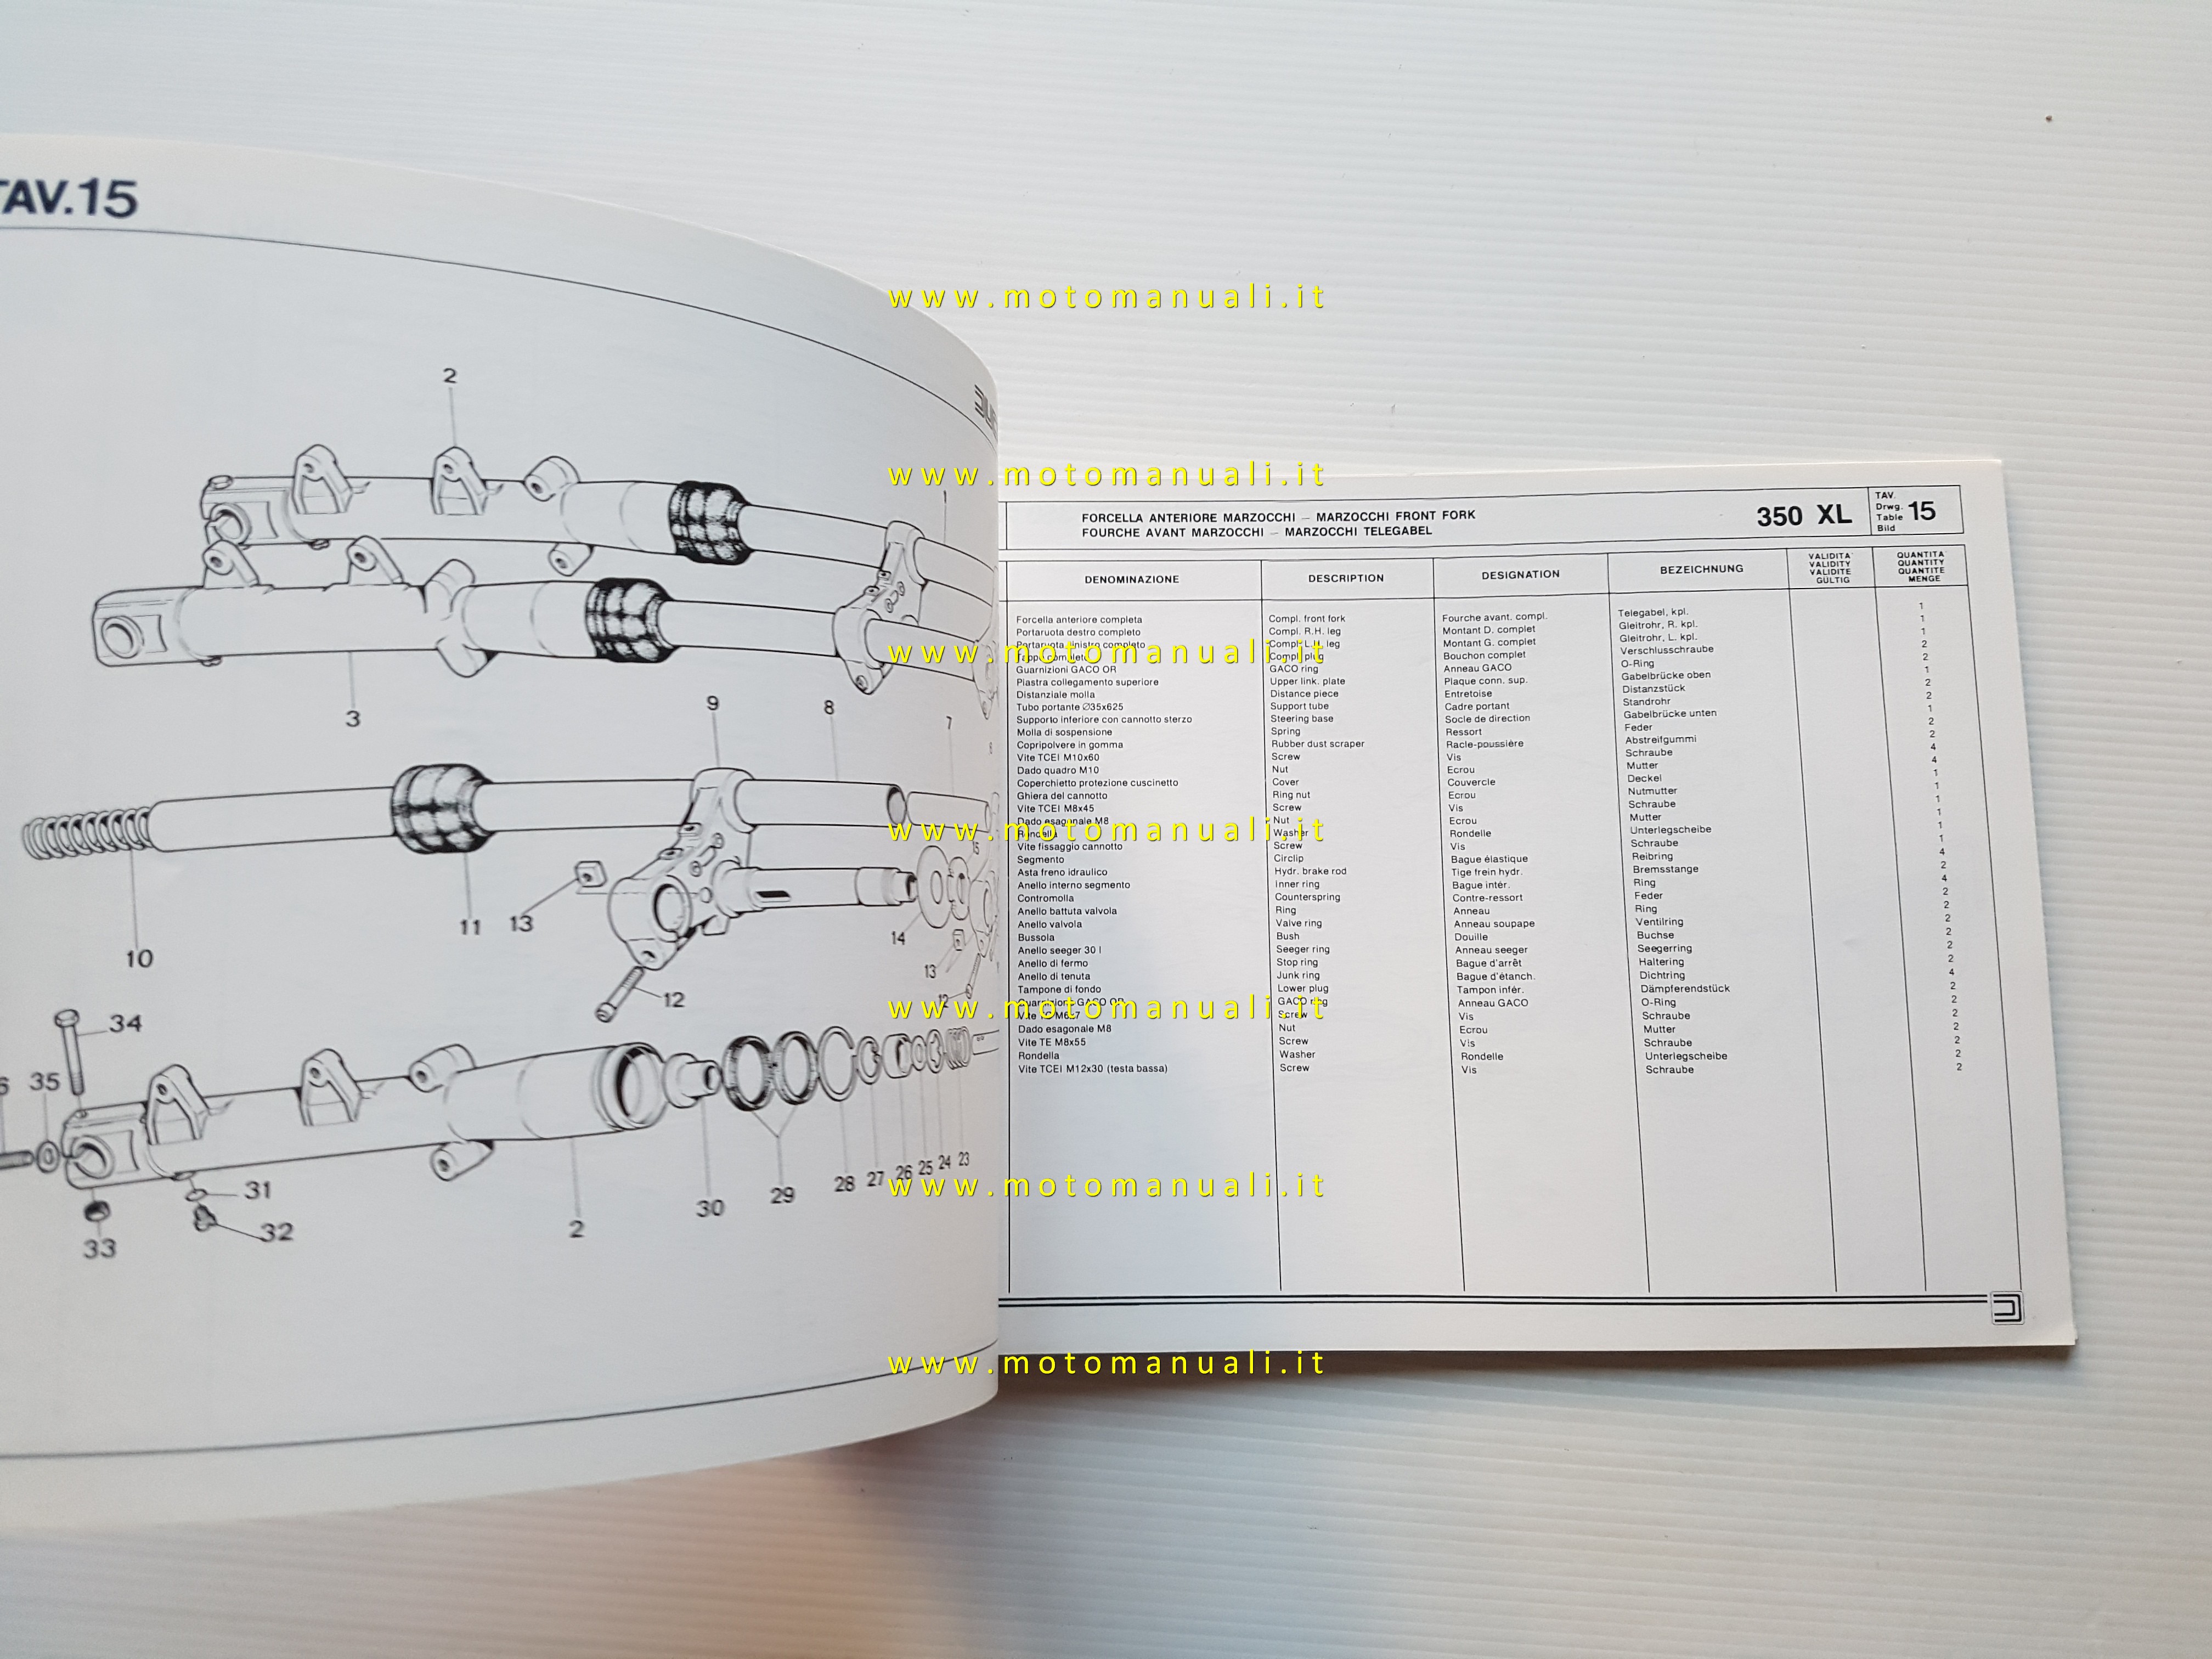 TAV.15
2
1
3
9
8
7
6
10
11
13
14
15
13
12
12
34
35
31
32
33
2
30
29
28
27
26
25
24
23
FORCELLA ANTERIORE MARZOCCHI – MARZOCCHI FRONT FORK
FOURCHE AVANT MARZOCCHI – MARZOCCHI TELEGABEL
350 XL
TAV.
Drwg.
Table
Bild
15
DENOMINAZIONE DESCRIPTION DESIGNATION BEZEICHNUNG
VALIDITA'
VALIDITY
VALIDITE
GÜLTIG
QUANTITA'
QUANTITY
QUANTITE
MENGE
Forcella anteriore completa Compl. front fork Fourche avant. compl. Telegabel, kpl. 1
Portaruota destro completo Compl. R.H. leg Montant D. complet Gleitrohr, R. kpl. 1
Portaruota sinistro completo Compl. L.H. leg Montant G. complet Gleitrohr, L. kpl. 1
Tappo completo Compl. plug Bouchon complet Verschlusschraube 2
Guarnizioni GACO OR GACO ring Anneau GACO O-Ring 2
Piastra collegamento superiore Upper link. plate Plaque conn. sup. Gabelbrücke oben 1
Distanziale molla Distance piece Entretoise Distanzstück 2
Tubo portante ∅35x625 Support tube Cadre portant Standrohr 2
Supporto inferiore con cannotto sterzo Steering base Socle de direction Gabelbrücke unten 1
Molla di sospensione Spring Ressort Feder 2
Copripolvere in gomma Rubber dust scraper Racle-poussière Abstreifgummi 2
Vite TCEI M10x60 Screw Vis Schraube 4
Dado quadro M10 Nut Ecrou Mutter 4
Coperchietto protezione cuscinetto Cover Couvercle Deckel 1
Ghiera del cannotto Ring nut Ecrou Nutmutter 1
Vite TCEI M8x45 Screw Vis Schraube 1
Dado esagonale M8 Nut Ecrou Mutter 1
Rondella Washer Rondelle Unterlegscheibe 1
Vite fissaggio cannotto Screw Vis Schraube 1
Segmento Circlip Bague élastique Reibring 4
Asta freno idraulico Hydr. brake rod Tige frein hydr. Bremsstange 2
Anello interno segmento Inner ring Bague intér. Ring 4
Contromolla Counterspring Contre-ressort Feder 2
Anello battuta valvola Ring Anneau Ring 2
Anello valvola Valve ring Anneau soupape Ventilring 2
Bussola Bush Douille Buchse 2
Anello seeger 30 I Seeger ring Anneau seeger Seegerring 2
Anello di fermo Stop ring Bague d'arrêt Haltering 2
Anello di tenuta Junk ring Bague d'étanch. Dichtring 4
Tampone di fondo Lower plug Tampon infér. Dämpferendstück 2
Guarnizioni GACO OR GACO ring Anneau GACO O-Ring 2
Vite Screw Vis Schraube 2
Dado esagonale M8 Nut Ecrou Mutter 2
Vite TE M8x55 Screw Vis Schraube 2
Rondella Washer Rondelle Unterlegscheibe 2
Vite TCEI M12x30 (testa bassa) Screw Vis Schraube 2
www.motomanuali.it
www.motomanuali.it
www.motomanuali.it
www.motomanuali.it
www.motomanuali.it
www.motomanuali.it
www.motomanuali.it